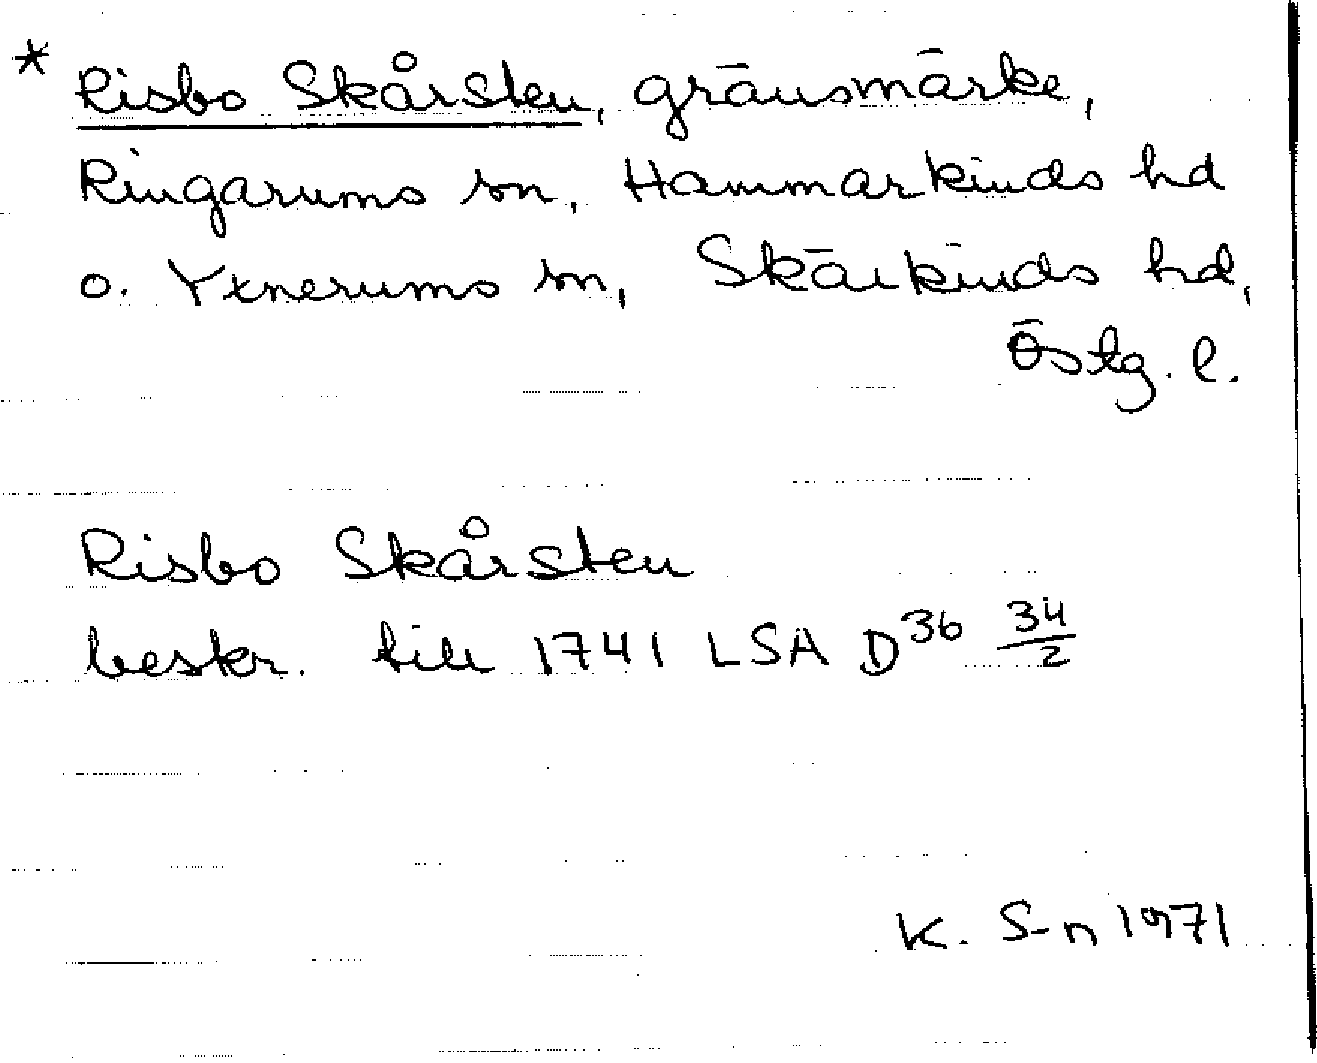 * Risbo Skårsten, gränsmärke,
Ringarums sn, Hammarkinds hd
o. Yxnerums sn, Skärkinds hd,
Östg. l.
Risbo Skårsten
beskr. till 1741 LSA D36 34/2
K. S-n 1971